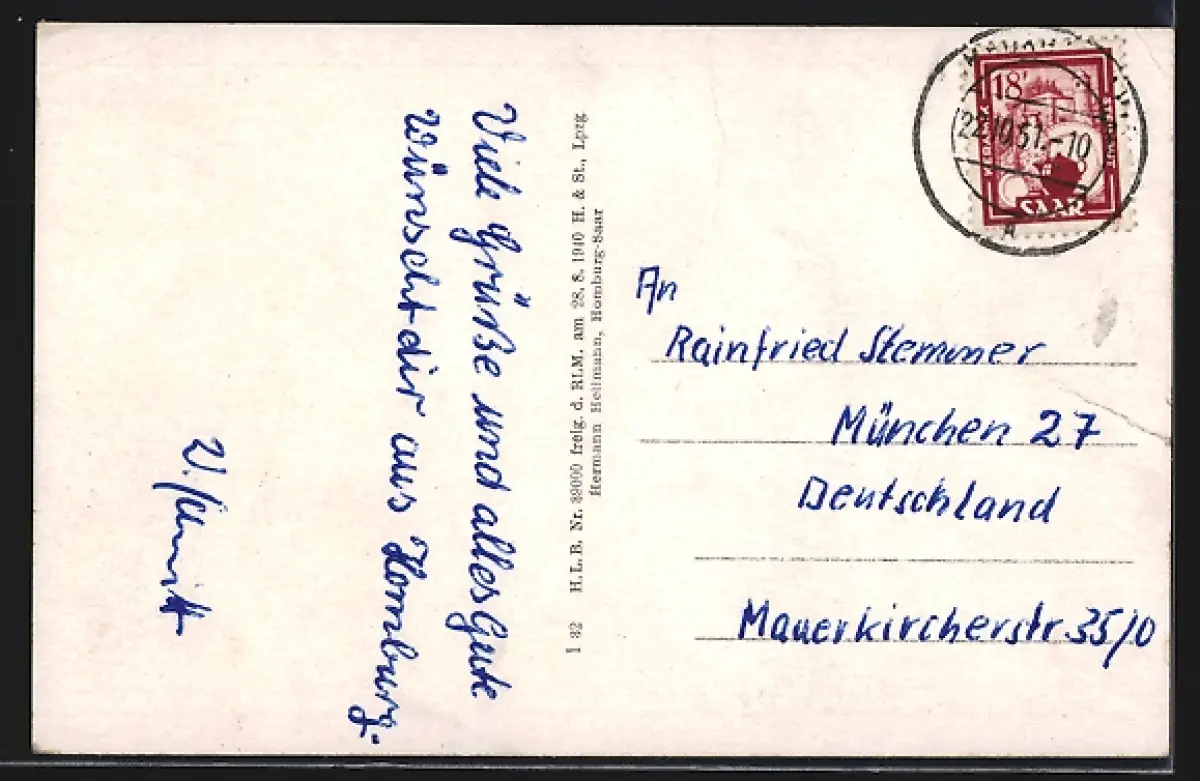 Viele Grüße und alles Gute
Wünscht dir aus Homburg.
V. Schmitt
1 82 H.L.B. Nr. 89000 freig. d. RLM. am 28. 8. 1940 H. & St., Lpzg
Hermann Hellmann, Homburg-Saar
18F
KERAMIK
SAAR
22.10.51.-10
A
An
Rainfried Stemmer
München 27
Deutschland
Mauerkircherstr 35/0